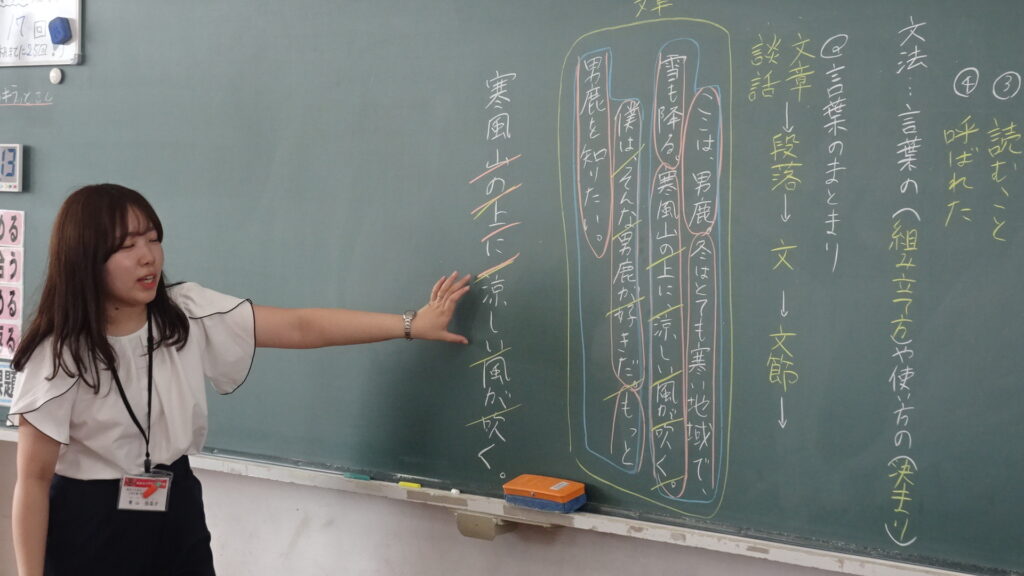 ③ 読むこと
④ 呼ばれた
文法:言葉の(組み立て方や使い方の(決まり)
@言葉のまとまり
文章→段落→文→文節→
談話
ここは、男鹿。冬はとても寒い地域で、
雪も降る。寒風山の上に涼しい風が吹く。
僕はそんな男鹿が好きだ。もっと
男鹿を知りたい。
寒風山の上に涼しい風が吹く。
17回
13
める
合う
める
課題